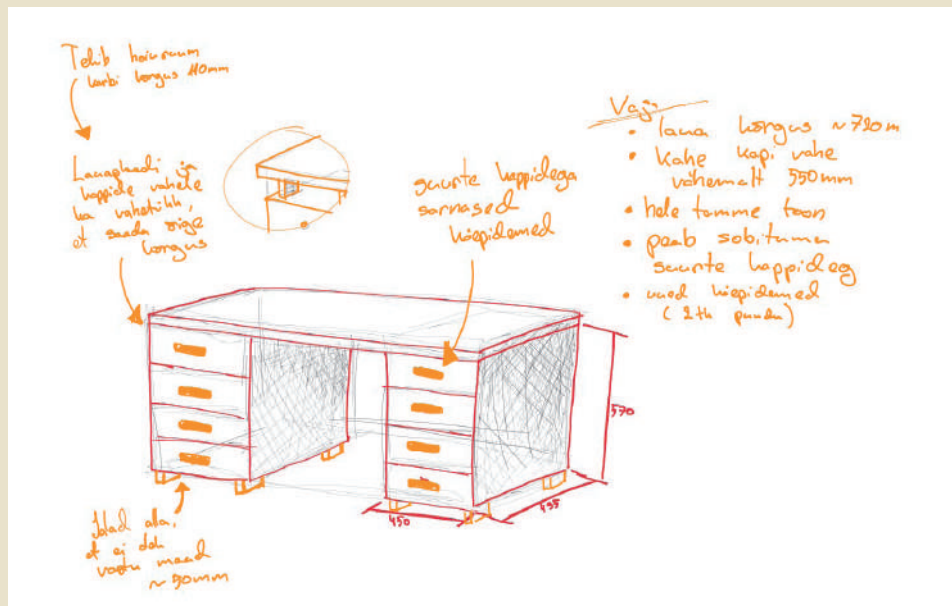 Tekib hoiuruum
karbi kõrgus 110mm
Lauaplaadi ja
kappide vahele
ka vahetükk,
et saada õige
kõrgus
suurte kappidega
sarnased
käepidemed
Vaja:
• laua kõrgus ~720m
• kahe kapi vahe
vähemalt 550mm
• hele tamme toon
• peab sobituma
suurte kappideg
• uued käepidemed
570
495
450
Jalad alla,
et ei
vastu maad
~50mm